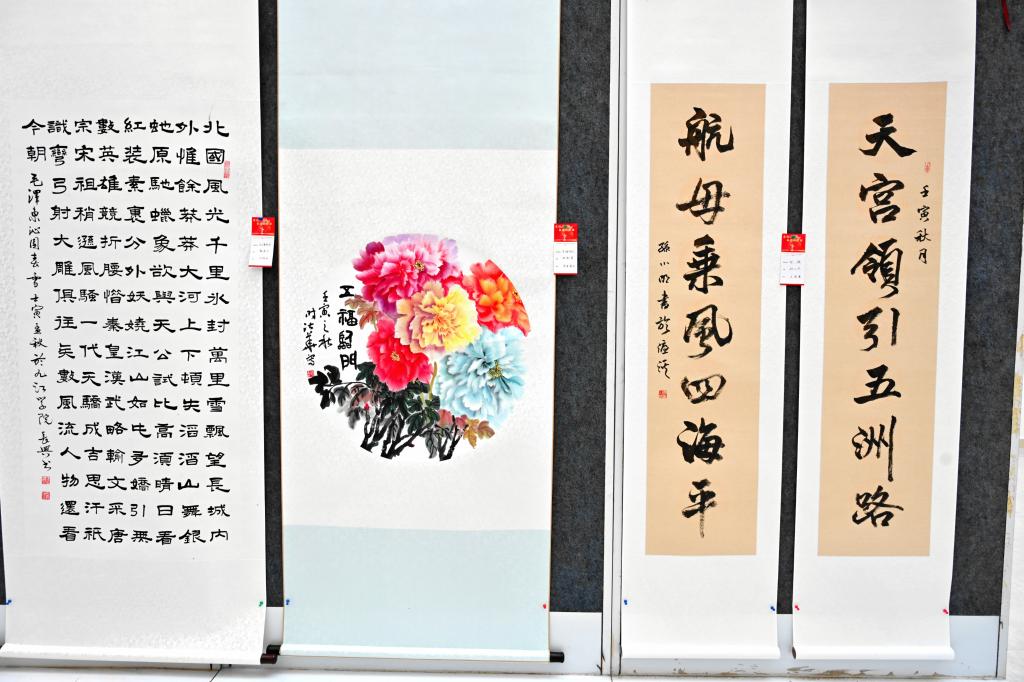 北國風光千里氷封萬里雪飄望長城内
外惟餘莽莽大河上下頓失滔滔山舞銀
蛇原馳蠟象欲與天公試比高須晴日看
紅装素裹分外妖嬈江山如此多嬌引無
數英雄競折腰惜秦皇漢武略輸文采唐
宗宋祖稍遜風騷一代天驕成吉思汗祇
識彎弓射大雕俱往矣數風流人物還看
今朝
毛澤東沁園春雪壬寅孟秋於九江学院長興书
五福臨門
壬寅之秋
壬寅秋月
天宫領引五洲路
航母乘風四海平
孫小明書於